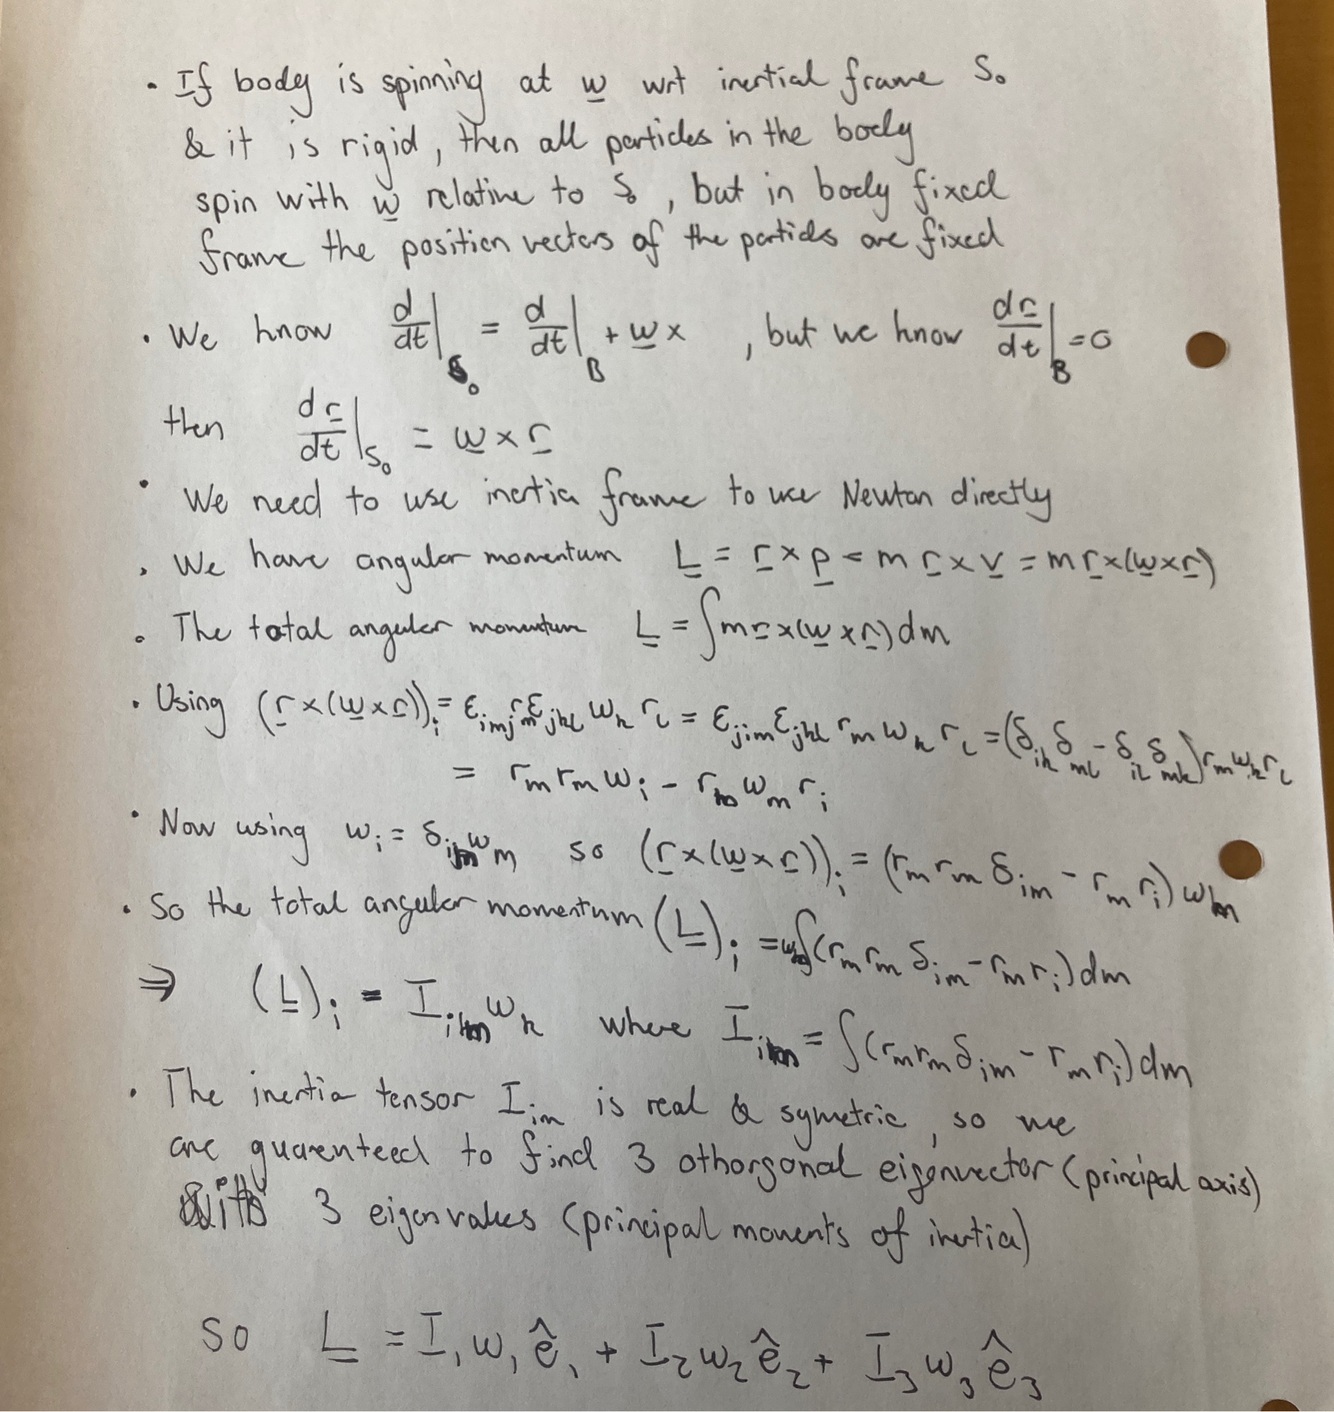 · If body is spinning at w wrt inertial frame S₀
& it is rigid, then all particles in the body
spin with w relative to S₀, but in body fixed
frame the position vectors of the particles are fixed
· We know d/dt|S₀ = d/dt|B + w × , but we know dr/dt|B = 0
then dr/dt|S₀ = w × r
· We need to use inertia frame to use Newton directly
· We have angular momentum L = r × p = m r × v = m r × (w × r)
· The total angular momentum L = ∫ m r × (w × r) dm
· Using (r × (w × r))ᵢ = εᵢₘⱼ rₘ εⱼₖₗ wₖ rₗ = εⱼᵢₘ εⱼₖₗ rₘ wₖ rₗ = (δᵢₖ δₘₗ - δᵢₗ δₘₖ) rₘ wₖ rₗ
= rₘ rₘ wᵢ - rₘ wₘ rᵢ
· Now using wᵢ = δᵢₘ wₘ so (r × (w × r))ᵢ = (rₘ rₘ δᵢₘ - rₘ rᵢ) wₘ
· So the total angular momentum (L)ᵢ = ∫(rₘ rₘ δᵢₘ - rₘ rᵢ) dm
⇒ (L)ᵢ = Iᵢₘ wₖ where Iᵢₘ = ∫(rₘ rₘ δᵢₘ - rₘ rᵢ) dm
· The inertia tensor Iᵢₘ is real & symetric, so we
are guarenteed to find 3 othorgonal eigenvector (principal axis)
with 3 eigenvalues (principal moments of inertia)
so L = I₁ w₁ ê₁ + I₂ w₂ ê₂ + I₃ w₃ ê₃